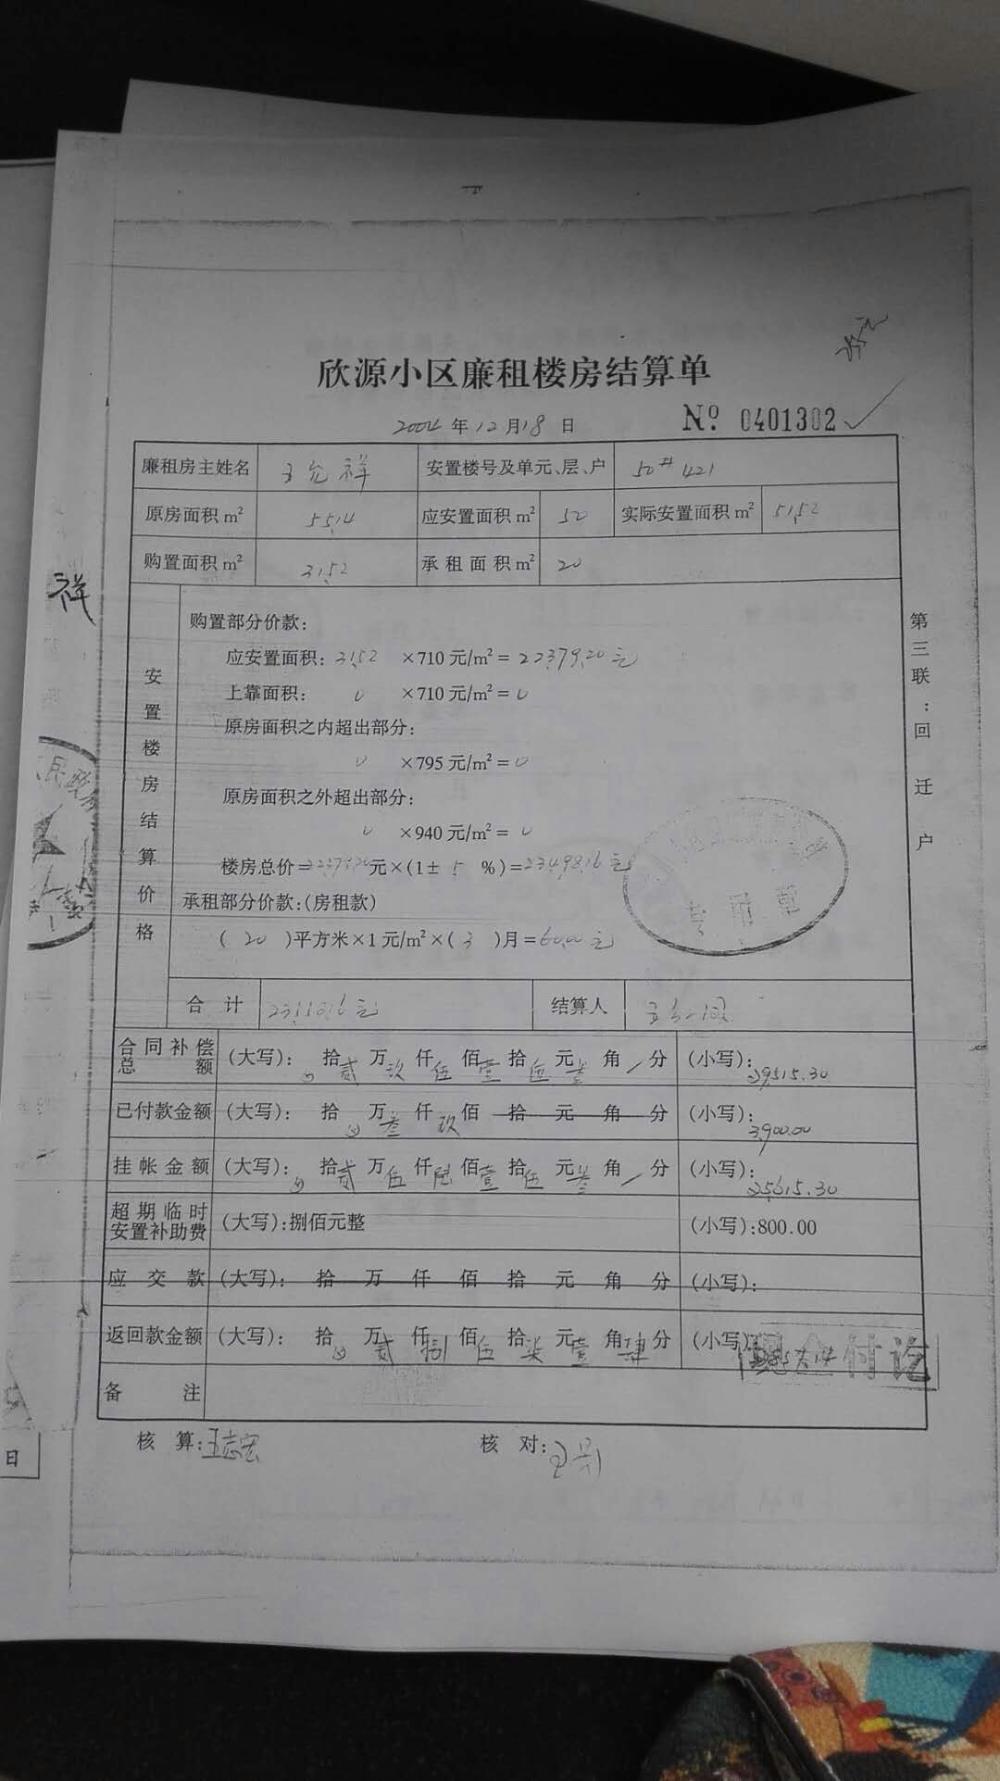 欣源小区廉租楼房结算单
2004年12月18日 № 0401302
廉租房主姓名 王允祥 安置楼号及单元、层、户 50# 421
原房面积m² 55.14 应安置面积m² 50 实际安置面积m² 51.52
购置面积m² 31.52 承租面积m² 20
安置楼房结算价格
购置部分价款:
应安置面积: 31.52 ×710元/m²=22379.20元
上靠面积: 0 ×710元/m²=0
原房面积之内超出部分:
0 ×795元/m²=0
原房面积之外超出部分:
0 ×940元/m²=0
楼房总价=22379.20元×(1±5%)=23498.16元
承租部分价款:(房租款)
(20)平方米×1元/m²×(3)月=60.00元
合计 结算人
合同补偿总额 (大写): 拾贰万玖仟伍佰壹拾伍元叁角/分 (小写): 29515.30
已付款金额 (大写): 拾万叁仟玖佰拾元角分 (小写): 3900.00
挂帐金额 (大写): 拾贰万伍仟陆佰壹拾伍元叁角/分 (小写): 25615.30
超期临时安置补助费 (大写):捌佰元整 (小写):800.00
应交款 (大写): 拾万仟佰拾元角分 (小写):
返回款金额 (大写): 拾万贰仟捌佰伍拾柒元壹角肆分 (小写)
现金付讫
备注
核算:王志宏 核对:
第三联:回迁户
专用章
祥
民政
日